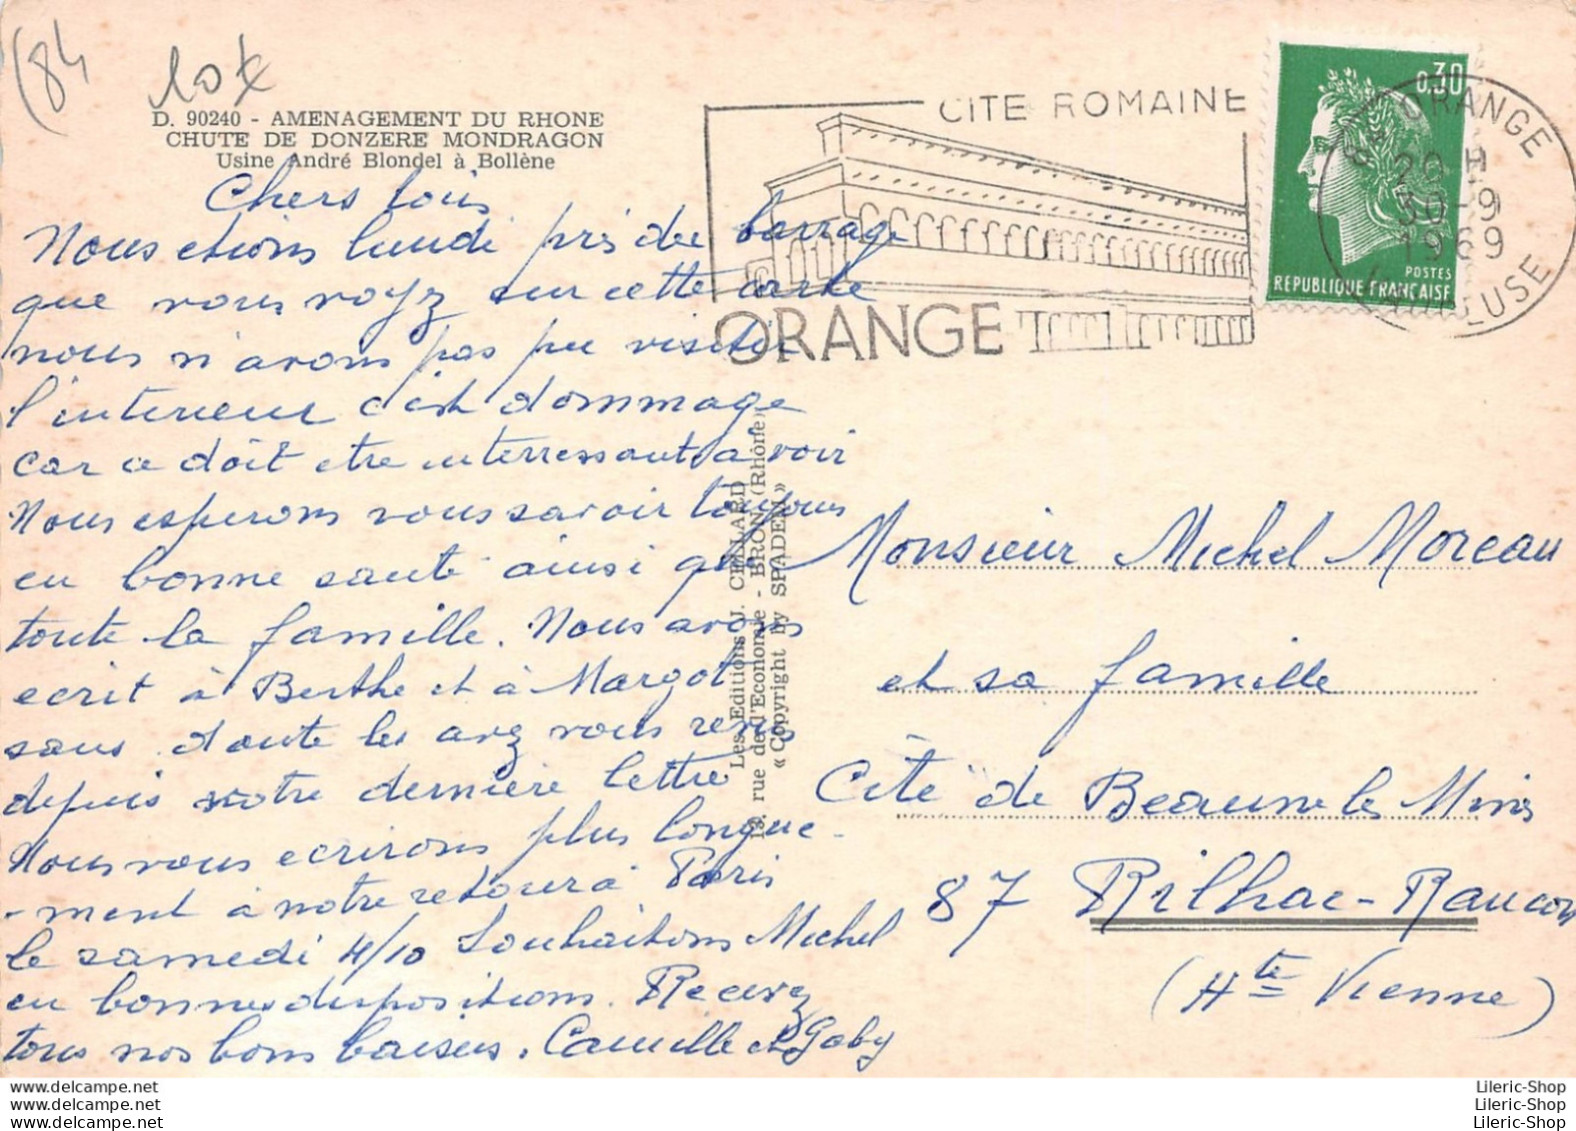 (84
10x
D. 90240 - AMENAGEMENT DU RHONE
CHUTE DE DONZERE MONDRAGON
Usine André Blondel à Bollène
CITE ROMAINE
ORANGE
0,30
POSTES
REPUBLIQUE FRANÇAISE
ORANGE
20 H
30-9
1969
VAUCLUSE
Chers tous
Nous etions lundi près du barrage
que vous voyez sur cette carte
nous n'avons pas pu visiter
l'interieur c'est dommage
car ce doit etre interressant à voir
Nous esperons vous savoir toujours
en bonne santé ainsi que
toute la famille. Nous avons
ecrit à Berthe et à Margot
sans doute les avez vous revus
depuis votre dernière lettre
Nous vous ecrirons plus longue-
-ment à notre retour à Paris
le samedi 4/10 Souhaitons Michel
en bonnes dispositions. Recevez
tous nos bons baisers. Camille et Gaby
Les Editions J. CELLARD
19, rue de l'Economie - BRON (Rhône)
« Copyright by SPADEM »
Monsieur Michel Moreau
et sa famille
Cité de Beaune les Mines
87 Rilhac-Rancon
(Hte Vienne)
Lileric-Shop.be
Lileric-Shop.com
Lileric-Shop.net
Lileric-Shop
Lileric-Shop
Lileric-Shop